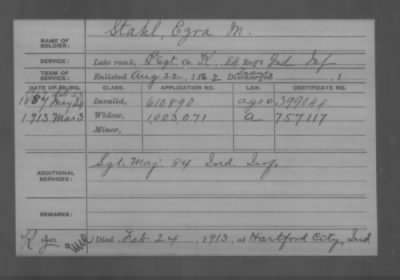 NAME OF SOLDIER: Stahl, Ezra M.
SERVICE: Late rank, Sgt. Co. K. Regt Ind Inf
TERM OF SERVICE: Enlisted Aug 22, 1862 Discharged , 1
DATE OF FILING. CLASS. APPLICATION NO. LAW. CERTIFICATE NO.
1887 May Invalid, 610890
1913 Mar 3 Widow, 1003071 a 757117
Minor,
ADDITIONAL SERVICES: Sgt. Maj. 84 Ind. Inf.
REMARKS:
Died Feb 24, 1913, at Hartford City, Ind